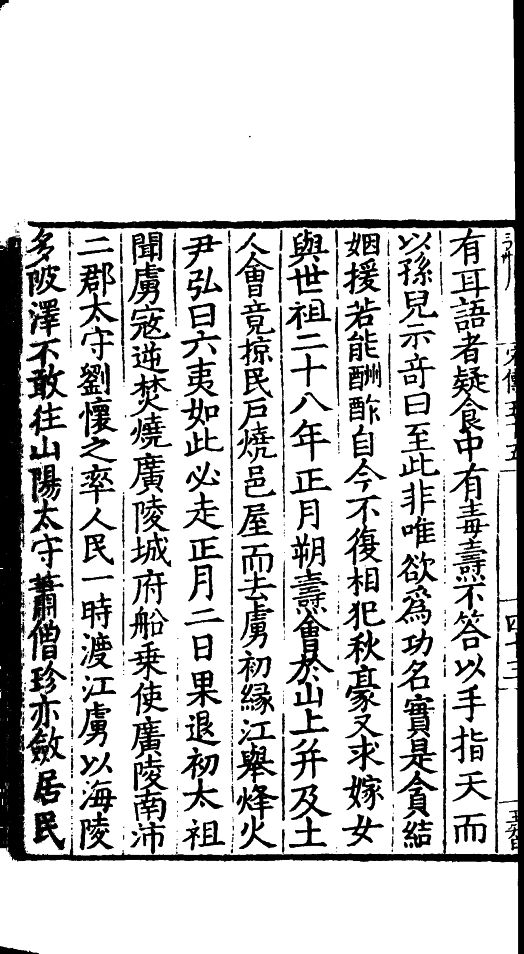 有耳語者疑食中有毒燾不答以手指天而
以孫兒示奇曰至此非唯欲爲功名實是貪結
姻援若能酬酢自今不復相犯秋毫又求嫁女
與世祖二十八年正月朔燾會於山上幷及土
人會竟掠民戶燒邑屋而去虜初緣江舉烽火
尹弘曰六夷如此必走正月二日果退初太祖
聞虜寇逆焚燒廣陵城府船乗使廣陵南沛
二郡太守劉懷之率人民一時渡江虜以海陵
多陂澤不敢往山陽太守蕭僧珍亦斂居民